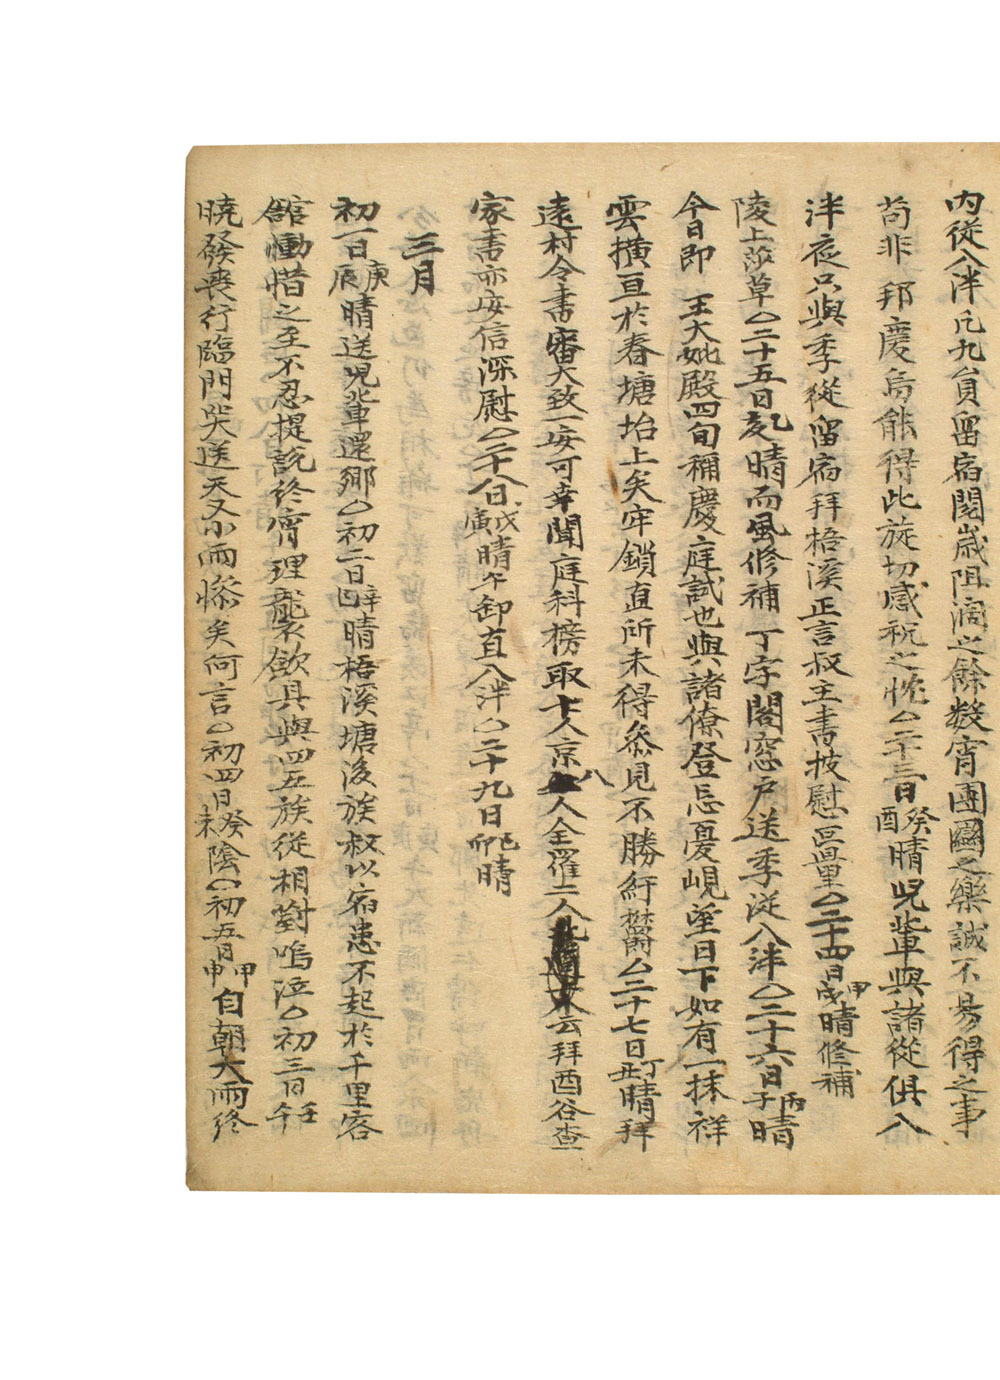 內從入泮凡九員留宿閱歲阻濶之餘數宵團圝之樂誠不易得之事
苟非邦慶烏能得此旋切感祝之忱△二十三日癸酉晴児軰與諸從俱入
泮夜只與季從留宿拜梧溪正言叔主書披慰區區△二十四日甲戌晴修補
陵上莎草△二十五日乙亥晴而風修補丁字閣窓戶送季從入泮△二十六日丙子晴
今日即王大妣殿四旬稱慶庭試也與諸僚登忌憂峴望日下如有一抹祥
雲橫亘於春塘坮上矣牢鎖直所未得叅見不勝紆欝△二十七日丁丑晴拜
遠村令書審大致一安可幸聞庭科榜取十人京八人全羅二人云拜酉谷查
家書亦安信深慰△二十八日戊寅晴午卸直入泮△二十九日己卯晴
三月
初一日庚辰晴送児軰還鄉△初二日辛巳晴梧溪塘後族叔以宿患不起於千里客
舘慟惜之至不忍提說終宵理襲歛具與四五族從相對嗚泣△初三日壬午
曉發喪行臨門哭送天又小雨慘矣何言△初四日癸未陰△初五日甲申自朝大雨終